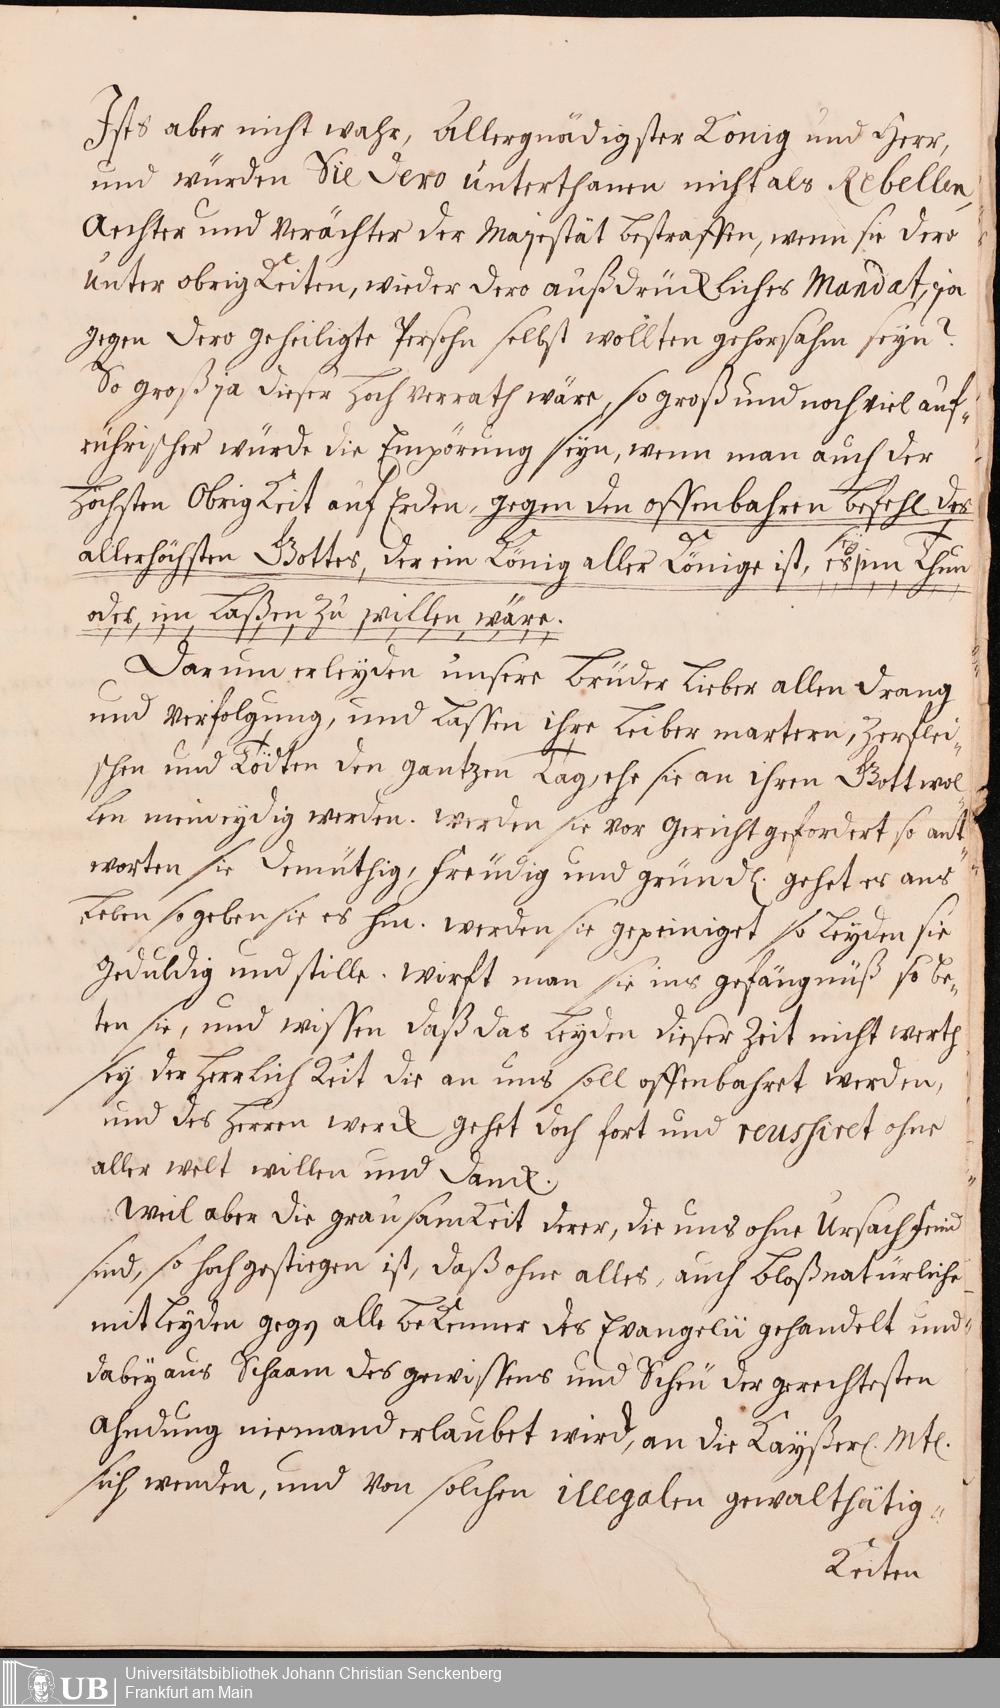 Ists aber nicht wahr, Allergnädigster König und Herr,
und würden Sie Dero Unterthanen nicht als Rebellen,
Aechter und Verächter der Majestät bestraffen, wenn sie dero
Unter obrigKeiten, wieder dero außdrückliches Mandat, ja
gegen Dero geheiligte Persohn selbst wollten gehorsahm seyn?
So groß ja dieser Hochverrath wäre, so groß und noch viel auf-
rührischer würde die Empörung seyn, wenn man auch der
Höchsten ObrigKeit auf Erden, gegen den offenbahren befehl des
allerhöchsten Gottes, der ein König aller Könige ist, es sey im Thun
oder im Laßen zu willen wäre.
Darum erleyden unsere Brüder Lieber allen Drang
und Verfolgung, und Lassen ihre Leiber martern, Zerflei-
schen und Tödten den gantzen Tag, ehe sie an ihren Gott wol-
len meineydig werden. werden sie vor Gericht gefordert so ant-
worten sie demüthig, freüdig und gründl. gehet es ans
Leben so geben sie es hin. werden sie gepeiniget so Leyden sie
geduldig und stille. wirft man sie ins gefängnüß so be-
ten sie, und wissen daß das Leyden dieser Zeit nicht werth
sey der HerrlichKeit die an uns soll offenbahret werden,
und des Herren werck gehet doch fort und reussiret ohne
aller welt willen und Danck.
Weil aber die grausamKeit derer, die uns ohne Ursach feind
sind, so hoch gestiegen ist, daß ohne alles, auch bloß natürliche
mitleyden gegen alle beKenner des Evangelii gehandelt und
dabey aus Schaam des gewissens und Scheü der gerechtesten
Ahndung niemand erlaubet wird, an die Kayßerl. Mtl.
sich wenden, und von solchen illegalen gewaltthätig-
Keiten
UB
Universitätsbibliothek Johann Christian Senckenberg
Frankfurt am Main